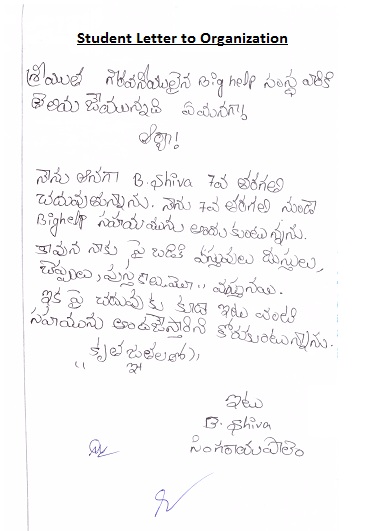 Student Letter to Organization
శ్రీయుత గౌరవనీయులైన Big help సంస్థ వారికి
తెలియ చేయునది ఏమనగా!
అయ్యా!
నేను అనగా B. Shiva 7వ తరగతి
చదువుతున్నాను. నేను 7వ తరగతి నుండి
Bighelp సహాయమును అందుకుంటున్నాను.
కావున నాకు పై బడికి వస్తువులు దుస్తులు,
చెప్పులు, పుస్తకాలు వస్తున్నాయి.
ఇక పై చదువుకు కూడా ఇటు వంటి
సహాయను అందజేస్తారని కోరుకుంటున్నాను.
"కృతజ్ఞతలతో"
ఇటు
B. Shiva
సింగరాయపాలెం